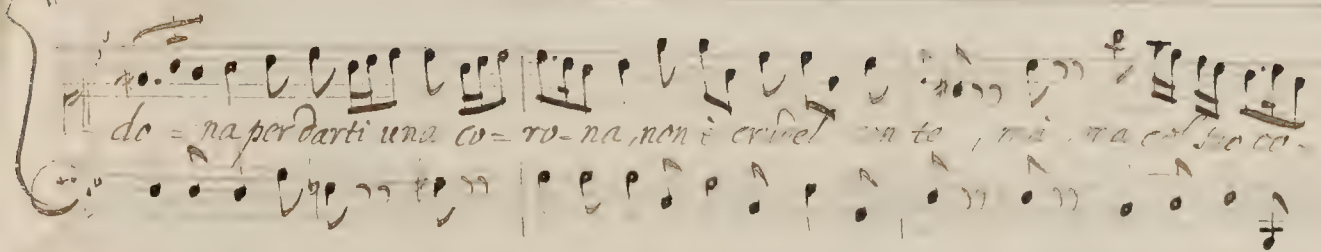 do = na per darti una co = ro = na, non è crudel con te, co -